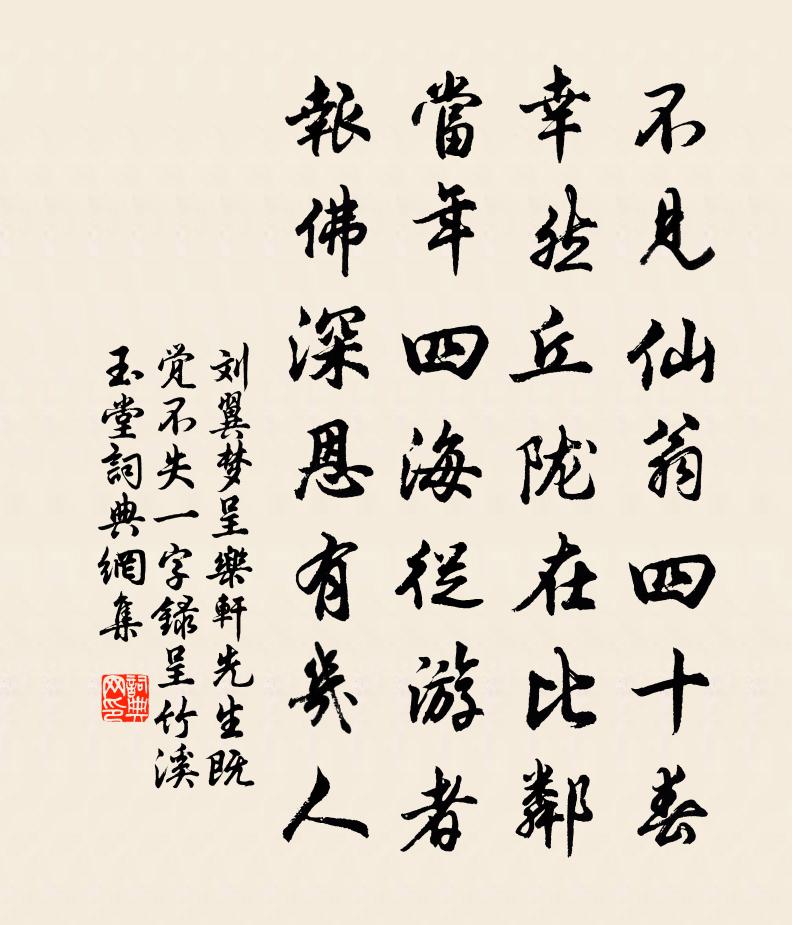 不見仙翁四十春
幸然丘陇在比鄰
當年四海從游者
報佛深恩有幾人
刘翼梦呈樂軒先生既
觉不失一字録呈竹溪
玉堂詞典網集
詞典网印